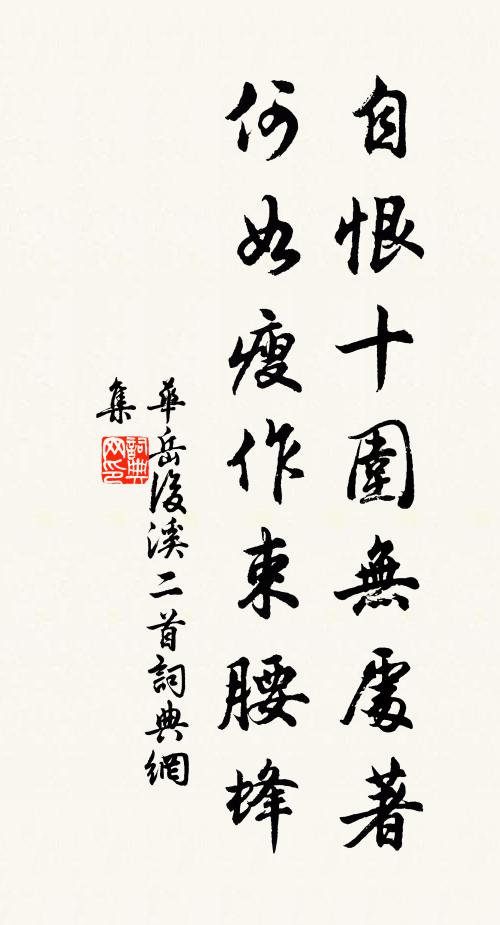 自恨十圍無處著
何如瘦作束腰蜂
華岳後溪二首詞典網
集
詞典網印